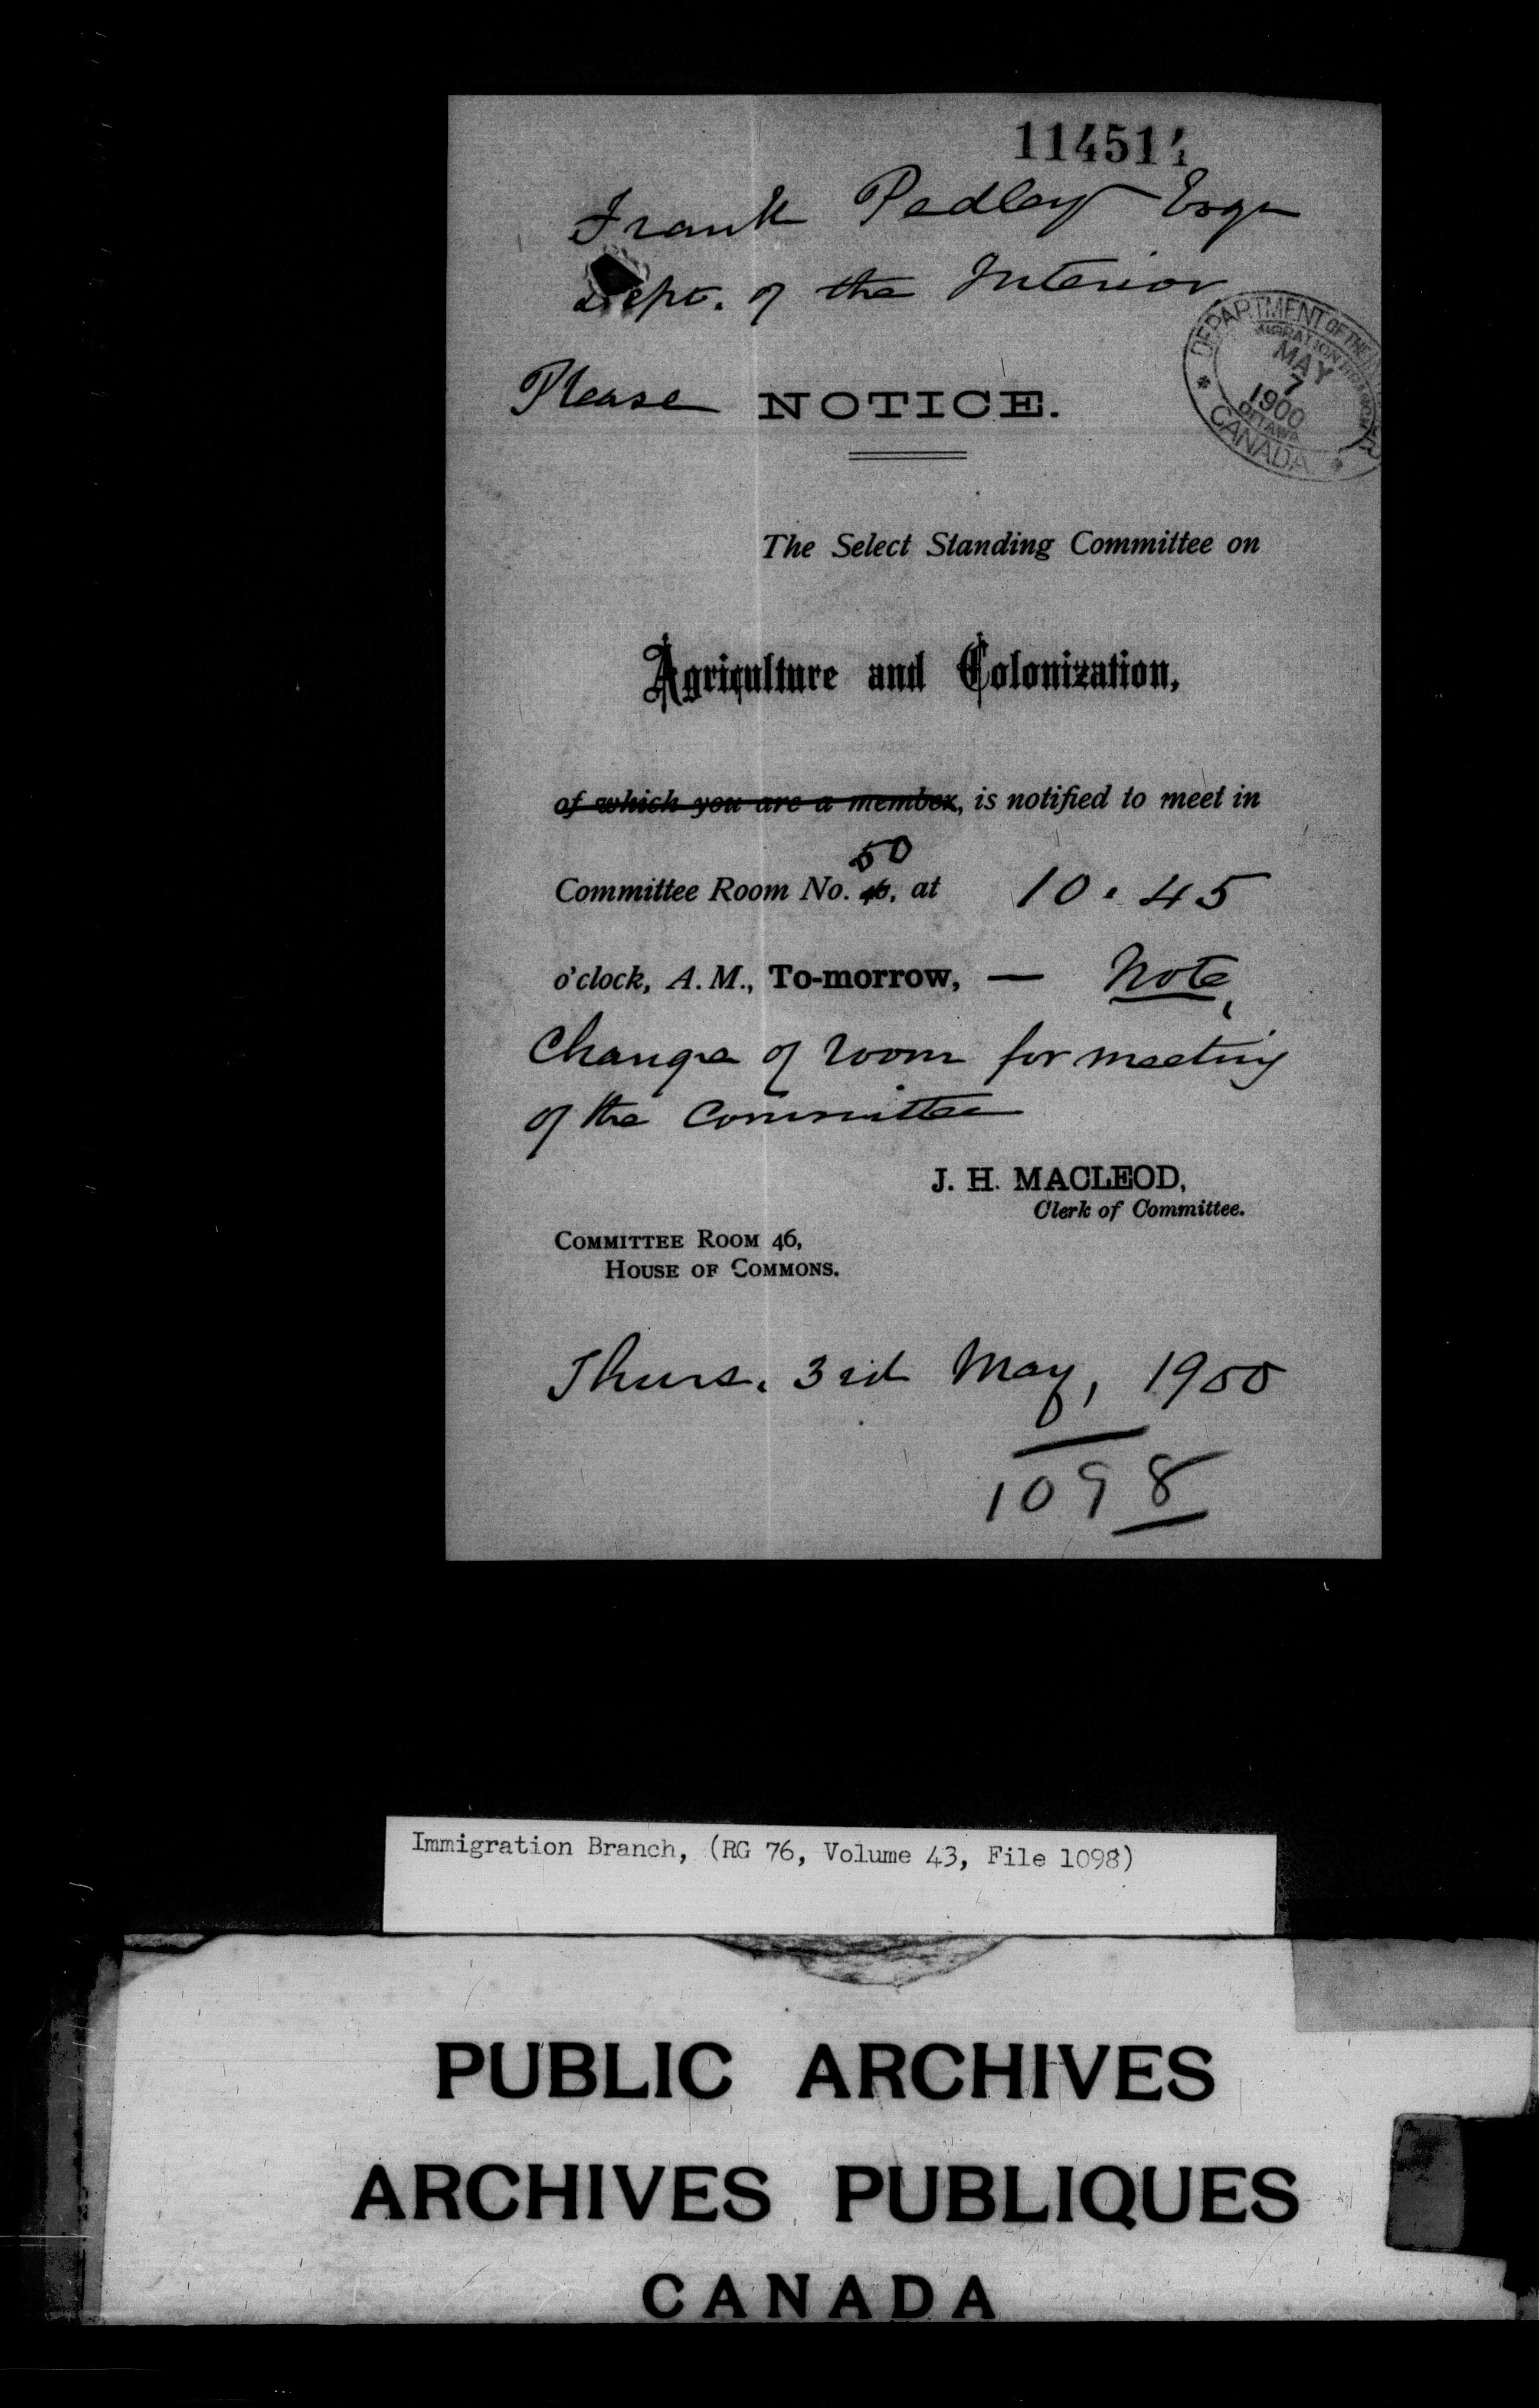 114514
Frank Pedley Esqr
Dept. of the Interior
DEPARTMENT OF THE
MAY
7
1900
OTTAWA
CANADA
Please NOTICE.
The Select Standing Committee on
Agriculture and Colonization,
of which you are a member, is notified to meet in
50
Committee Room No. 46, at 10.45
o'clock, A.M., To-morrow, — Note,
Change of room for meeting
of the Committee
J. H. MACLEOD,
Clerk of Committee.
COMMITTEE ROOM 46,
HOUSE OF COMMONS.
Thurs. 3rd May, 1900
1098
Immigration Branch, (RG 76, Volume 43, File 1098)
PUBLIC ARCHIVES
ARCHIVES PUBLIQUES
CANADA